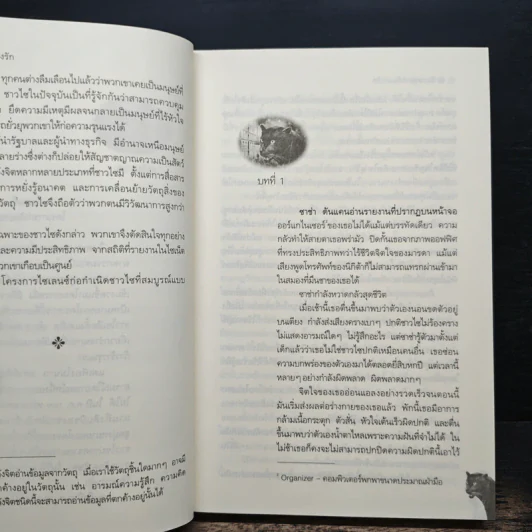 งรัก
ทุกคนต่างลืมเลือนไปแล้วว่าพวกเขาเคยเป็นมนุษย์ที่
ชาวไซในปัจจุบันเป็นที่รู้จักกันว่าสามารถควบคุม
ยึดความมีเหตุมีผลจนกลายเป็นมนุษย์ที่ไร้หัวใจ
ถยั่วยุพวกเขาให้ก่อความรุนแรงได้
นำรัฐบาลและผู้นำทางธุรกิจ มีอำนาจเหนือมนุษย์
ลายร่างซึ่งต่างก็ปล่อยให้สัญชาตญาณความเป็นสัตว์
งจิตหลากหลายประเภทที่ชาวไซมี ตั้งแต่การสื่อสาร
การหยั่งรู้อนาคต และการเคลื่อนย้ายวัตถุสิ่งของ
วัตถุ ชาวไซจึงถือตัวว่าพวกตนมีวิวัฒนาการสูงกว่า
ฉพาะของชาวไซดังกล่าว พวกเขาจึงตัดสินใจทุกอย่าง
และความมีประสิทธิภาพ จากสถิติที่รายงานในไซเน็ต
วกเขาเกือบเป็นศูนย์
โครงการไซเลนซ์ก่อกำเนิดชาวไซที่สมบูรณ์แบบ
งจิตอ่านข้อมูลจากวัตถุ เมื่อเราใช้วัตถุชิ้นใดมากๆ อาจมี
ค้างอยู่ในวัตถุนั้น เช่น อารมณ์ความรู้สึก ความคิด
งจิตชนิดนี้จะสามารถอ่านข้อมูลที่ตกค้างอยู่นั้นได้
บทที่ 1
ซาช่า ดันแคนอ่านรายงานที่ปรากฏบนหน้าจอ
ออร์แกไนเซอร์ ของเธอไม่ได้แม้แต่บรรทัดเดียว ความ
กลัวทำให้สายตาเธอพร่ามัว ปิดกั้นเธอจากภาพออฟฟิศ
ที่ทรงประสิทธิภาพทว่าไร้ชีวิตจิตใจของมารดา แม้แต่
เสียงพูดโทรศัพท์ของนิกิต้าก็ไม่สามารถแทรกผ่านเข้ามา
ในสมองที่มึนชาของเธอได้
ซาช่ากำลังหวาดกลัวสุดชีวิต
เมื่อเช้านี้เธอตื่นขึ้นมาพบว่าตัวเองนอนขดตัวอยู่
บนเตียง กำลังส่งเสียงครางเบาๆ ปกติชาวไซไม่ร้องคราง
ไม่แสดงอารมณ์ใดๆ ไม่รู้สึกอะไร แต่ซาช่ารู้ตัวมาตั้งแต่
เด็กแล้วว่าเธอไม่ใช่ชาวไซปกติเหมือนคนอื่น เธอซ่อน
ความบกพร่องของตัวเองมาได้ตลอดยี่สิบหกปี แต่เวลานี้
หลายๆ อย่างกำลังผิดพลาด ผิดพลาดมากๆ
จิตใจของเธออ่อนแอลงอย่างรวดเร็วจนตอนนี้
มันเริ่มส่งผลต่อร่างกายของเธอแล้ว พักนี้เธอมีอาการ
กล้ามเนื้อกระตุก ตัวสั่น หัวใจเต้นเร็วผิดปกติ และตื่น
ขึ้นมาพบว่าตัวเองน้ำตาไหลเพราะความฝันที่จำไม่ได้ ใน
ไม่ช้าเธอก็คงจะไม่สามารถปกปิดความผิดปกตินี้เอาไว้
Organizer – คอมพิวเตอร์พกพาขนาดประมาณฝ่ามือ